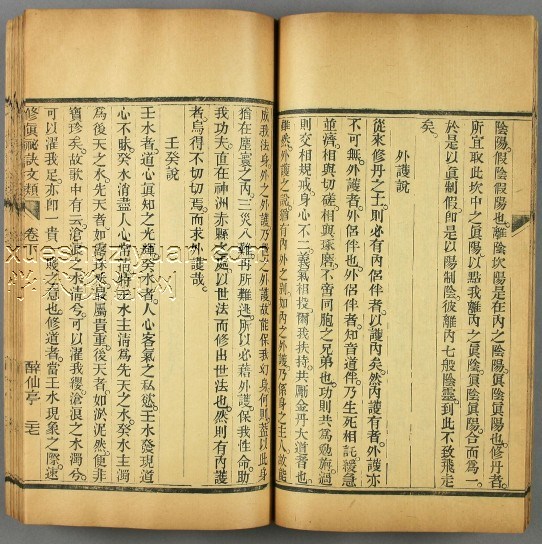 陰陽。假陰假陽也。離陰坎陽。是在內之陰陽。眞陰眞陽也。修丹者。
所宜取此坎中之眞陽。以點我離內之眞陰。眞陰眞陽合而爲一。
於是以眞制假。卽是以陽制陰。彼離內七般陰靈。到此不致飛走
矣。
外護說
從來修丹之士。則必有內侶伴者。以護內矣。然內護有者。外護亦
不可無。外護者。外侶伴也。外侶伴者。知音道伴。乃生死相託。緩急
並濟。相與切磋。相與琢磨。不啻同胞之兄弟也。功則共爲勸勉。過
則交相規戒。身心不二。義氣相投。爾我扶持。共勵金丹大道者也。
難然。外護之說。猶有內外之判。如內之外護。乃係身之主人。故能
成我法身。外之外護。乃
外護。故能保我幻身。何則。蓋以此身
猶在塵寰之內。三災八難。再所難逃。所以必藉外護。保我性命。助
我功夫。直在神洲赤縣之處。以世法而修出世法也。然則有內護
者。烏得不切切焉。而求外護哉。
壬癸說
壬水者。道心眞知之光輝。癸水者。人心客氣之私慾。壬水發現。道
心不昧。癸水消盡。人心常淸。
壬水主淸。爲先天之水。癸水主濁。
爲後天之水。先天者。如
最屬貴重。後天者。如淤泥然。便非
寶珍矣。故歌中有云。滄浪之水淸兮。可以濯我纓。滄浪之水濁兮。
可以濯我足。亦卽一貴一賤之意也。修道者。當壬水現象之際。速
修眞祕訣文類
卷下
醉仙亭
三七
xueshuyuan.com